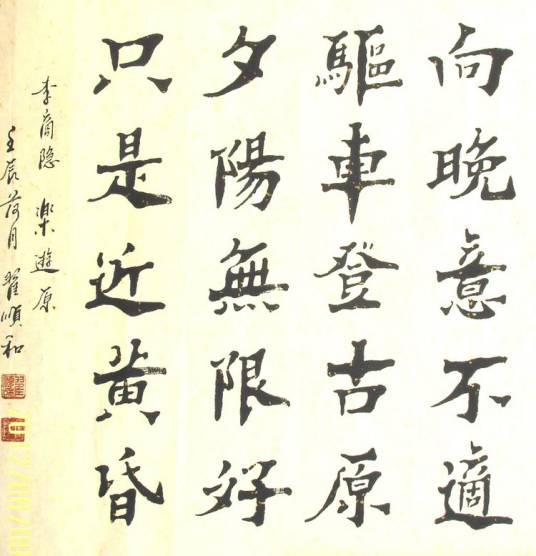 向晚意不適
驅車登古原
夕陽無限好
只是近黄昏
李商隐 樂遊原
壬辰荷月 翟順和